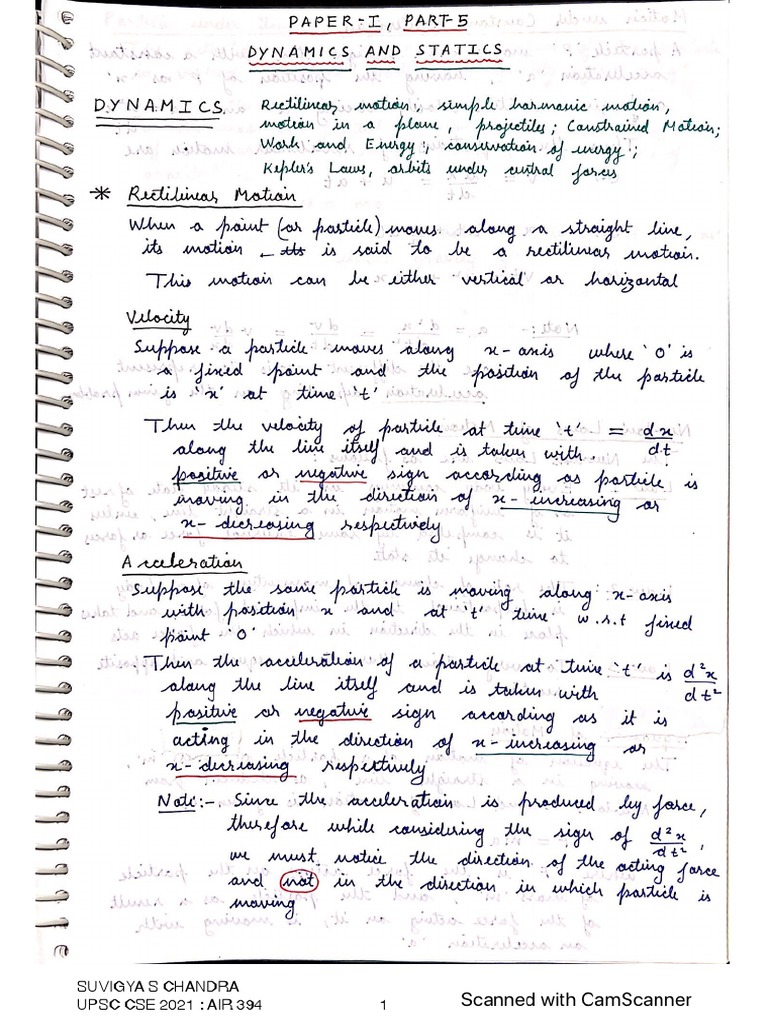 PAPER-I, PART-5
DYNAMICS AND STATICS
DYNAMICS Rectilinear motion, simple harmonic motion,
motion in a plane, projectiles; Constrained Motion;
Work and Energy, conservation of energy;
Kepler's Laws, orbits under central forces
* Rectilinear Motion
When a point (or particle) moves along a straight line,
its motion is said to be a rectilinear motion.
This motion can be either vertical or horizontal
Velocity
Suppose a particle moves along x-axis where 'O' is
a fixed point and the position of the particle
is 'x' at time 't'
Then the velocity of particle at time 't' = dx/dt
along the line itself and is taken with
positive or negative sign according as particle is
moving in the direction of x-increasing or
x-decreasing respectively
Acceleration
Suppose the same particle is moving along x-axis
with position x and at 't' time w.r.t fixed
point 'O'
Then the acceleration of a particle at time 't' is d²x/dt²
along the line itself and is taken with
positive or negative sign according as it is
acting in the direction of x-increasing or
x-decreasing respectively
Note:- Since the acceleration is produced by force,
therefore while considering the sign of d²x/dt²,
we must notice the direction of the acting force
and not in the direction in which particle is
moving
SUVIGYA S CHANDRA
UPSC CSE 2021 : AIR 394
1
Scanned with CamScanner